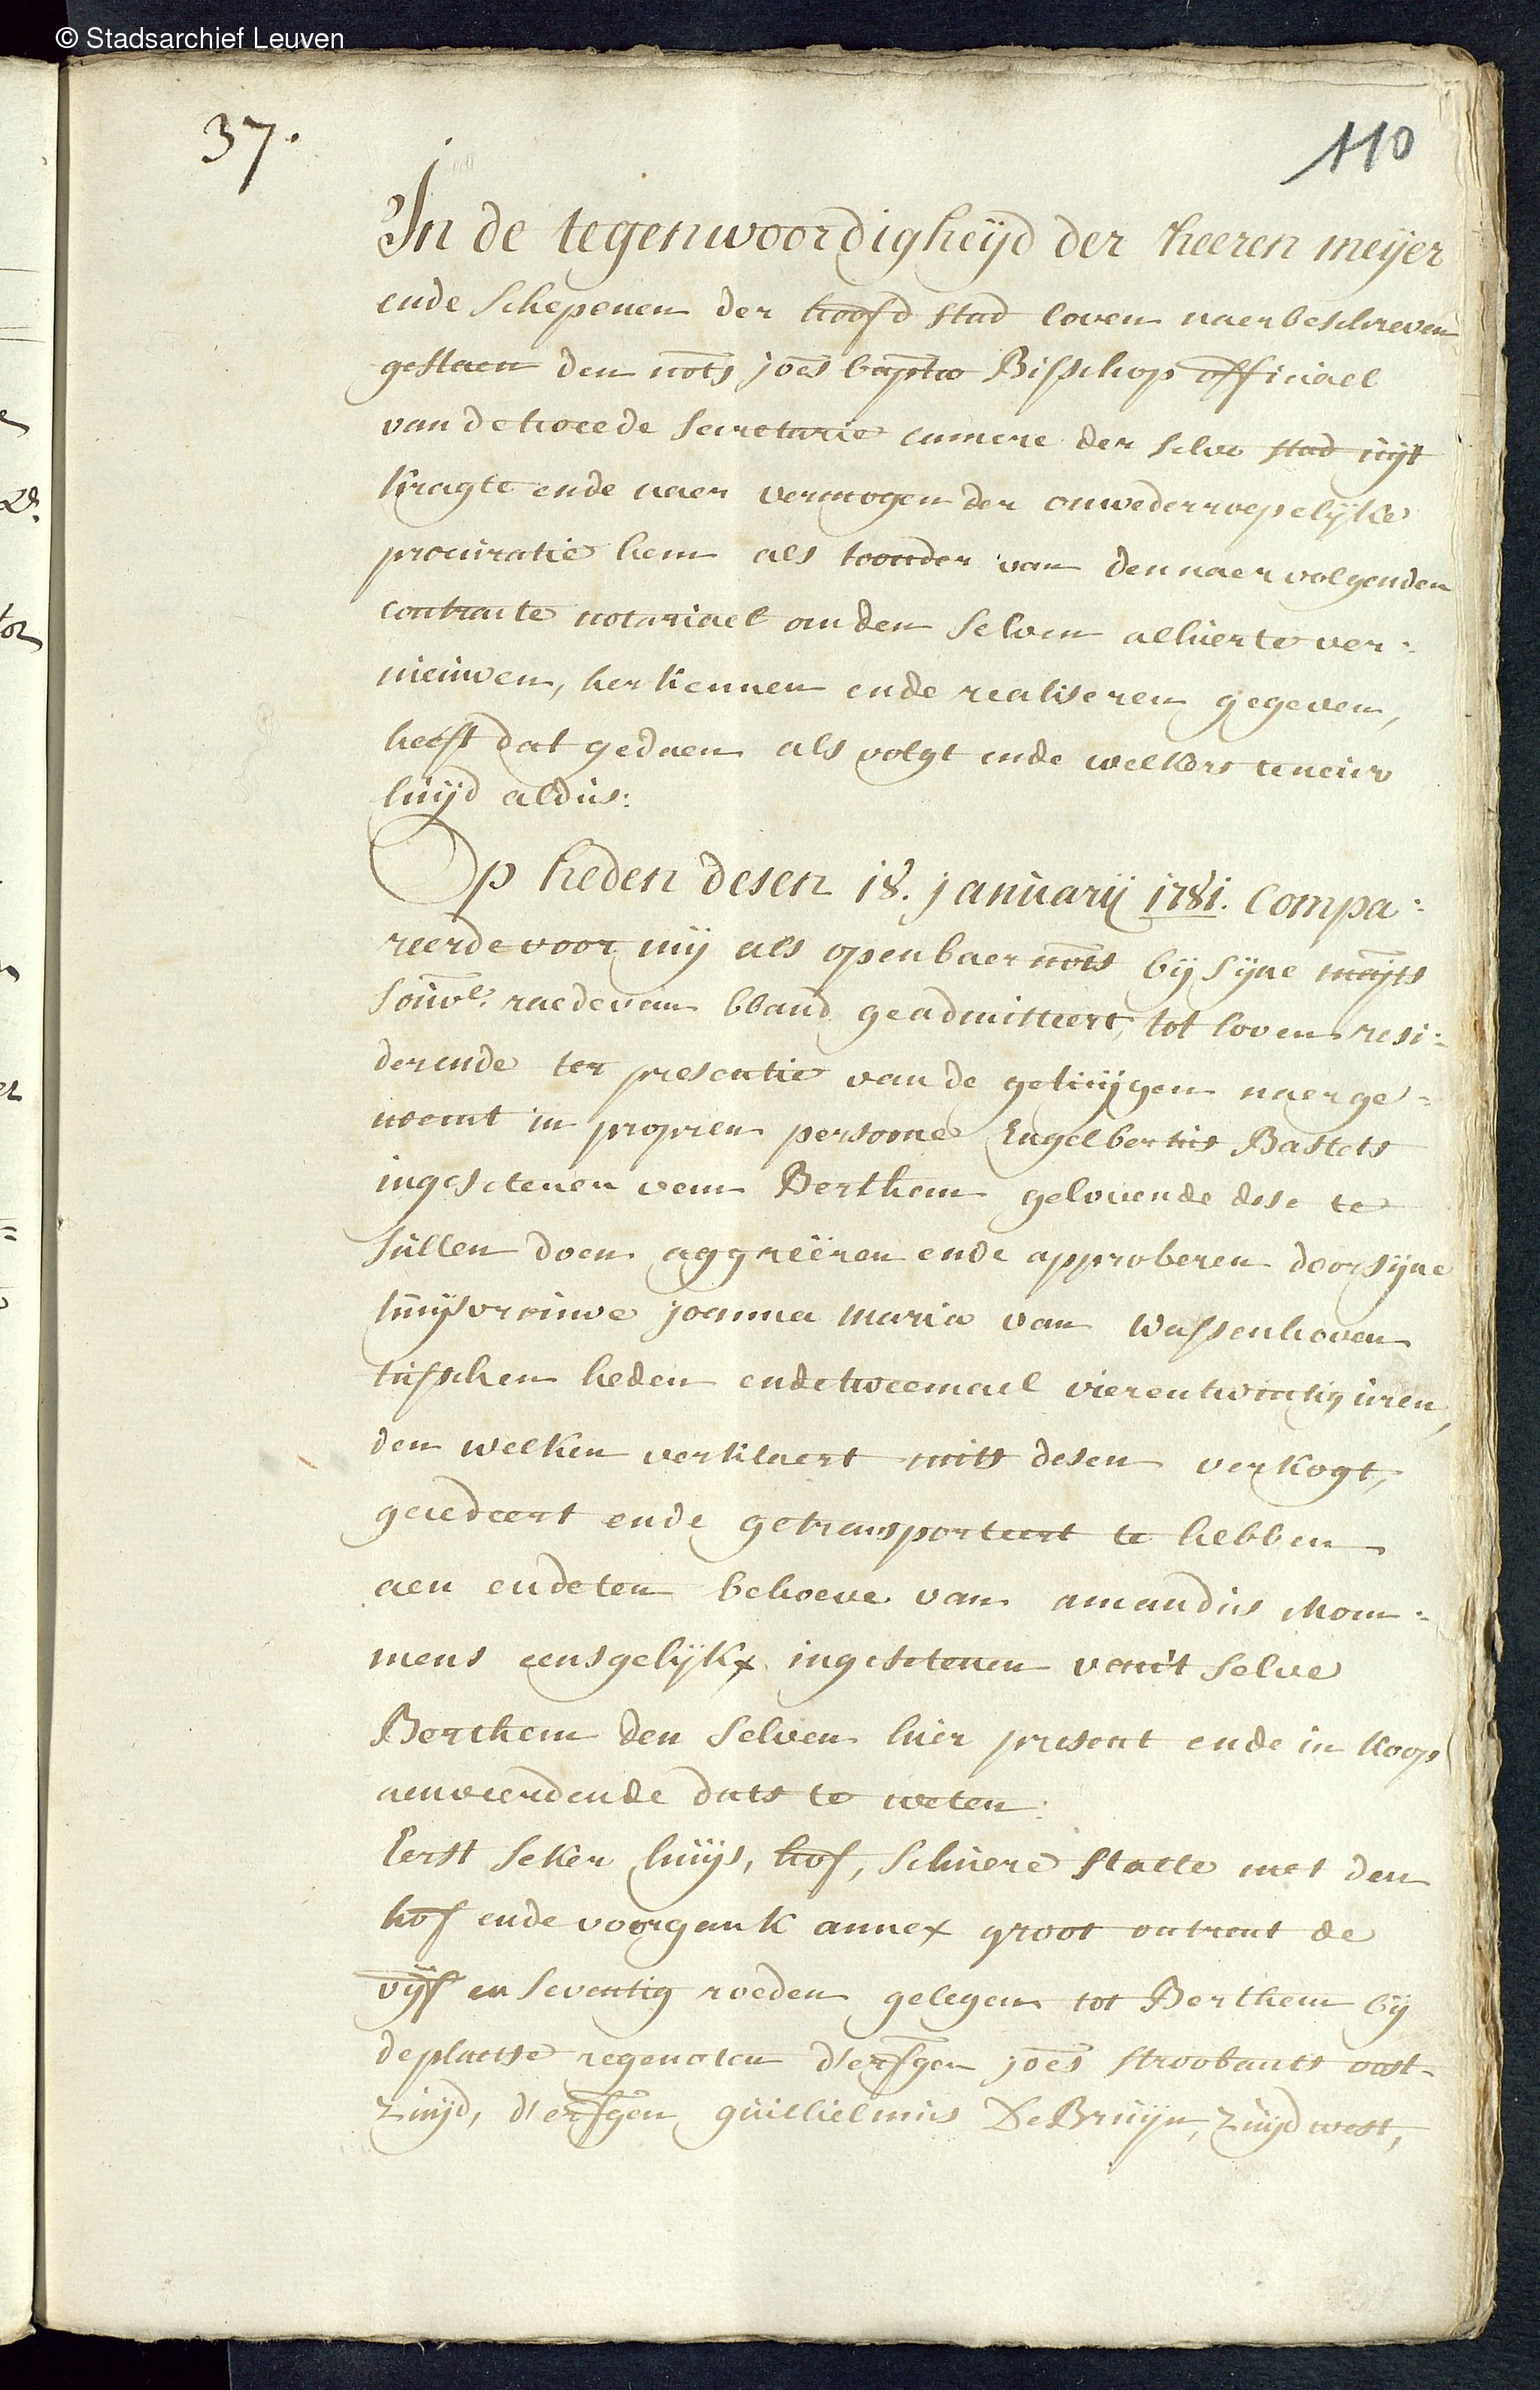 © Stadsarchief Leuven
37.
110
In de tegenwoordigheijd der heeren meijer
ende schepenen der hoofd stad loven naerbeschreven
gestaen den nots joes bapta Bisschop officiael
van de tweede secretarie camere der selve stad uijt
kragte ende naer vermogen der onwederroepelijke
procuratie hem als toonder van den naervolgenden
contracte notariael om den selven alhier te ver:
nieuwen, herkennen ende realiseren gegeven,
heeft dat gedaen als volgt ende welkers teneur
luijd aldus:
Op heden desen 18. januarij 1781. Compa:
reerde voor mij als openbaer nots bij sijne majts
souvl. raede van bband geadmitteert, tot loven resi:
derende ter presentie van de getuijgen naerge=
noemt in propren persoone Engelbertus Bastets
ingesetenen van Berthem gelovende dese te
sullen doen aggreëren ende approberen door sijne
huijsvrouwe joanna maria van Wassenhoven
tusschen heden ende tweemael vierentwintig uren,
den welken verklaert mits desen verkogt,
gecedeert ende getransporteert te hebben
aen ende ten behoeve van amandus Mom:
mens eensgelijkx ingesetenen van't selve
Berthem den selven hier present ende in koop
aenveerdende dats te weten:
Eerst seker huijs, hof, schuere stalle met den
hof ende voorgank annex groot ontrent de
vijf en seventig roeden gelegen tot Berthem bij
de plaetse regenoten d'erfgen joes stroobants oost-
zuijd, d'erfgen guillielmus De Bruijn, zuijd west,